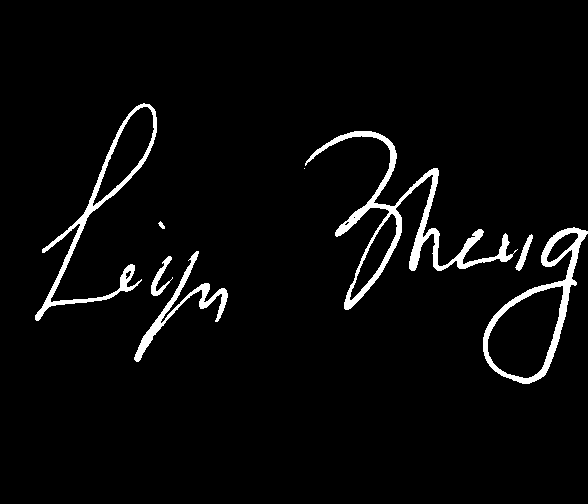 Leiyu Zheng